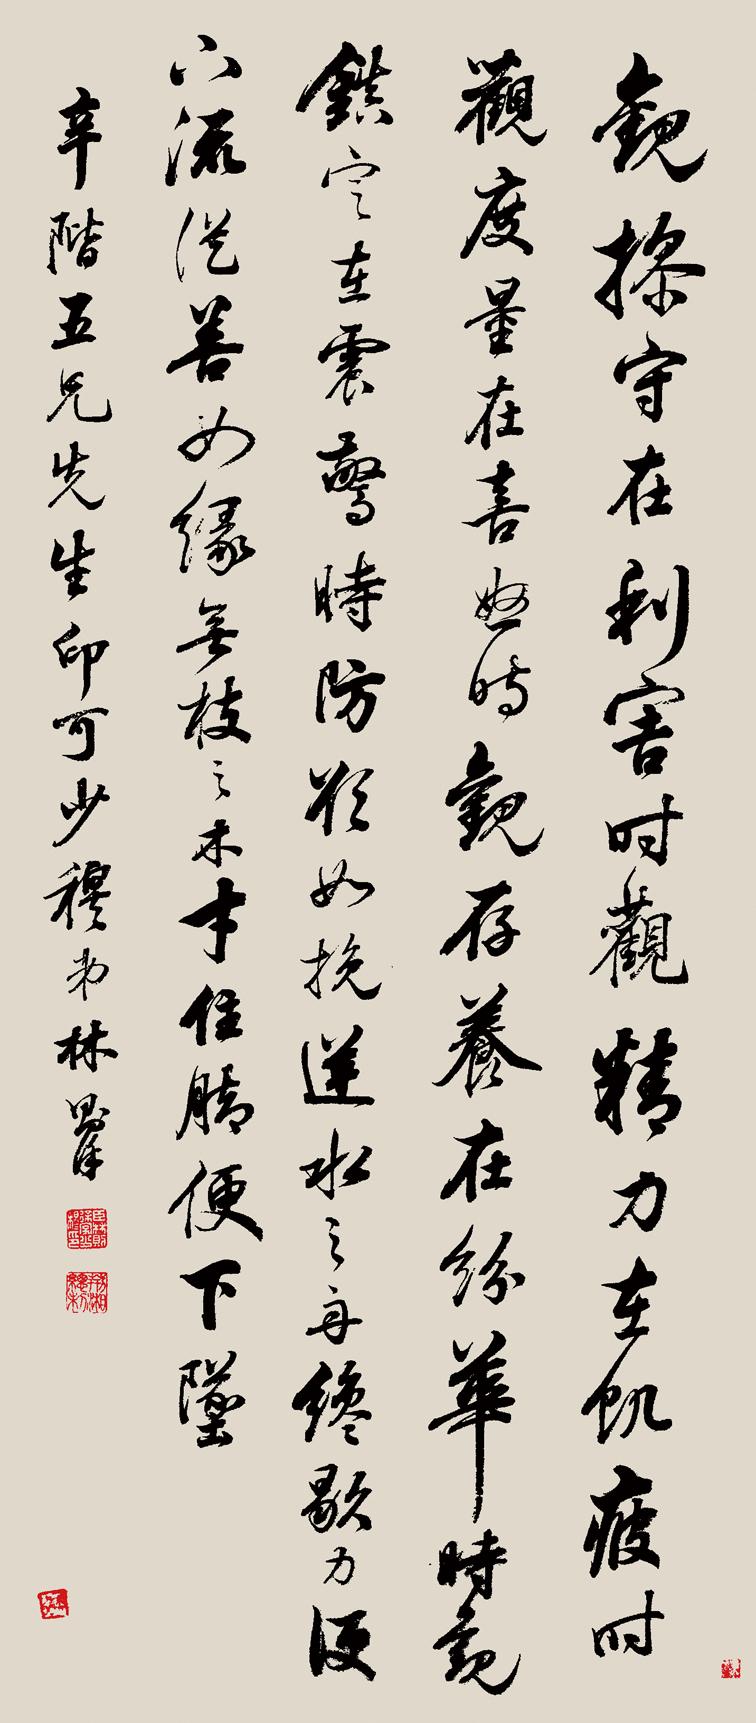 觀操守在利害时觀精力在飢疲时
觀度量在喜怒時觀存養在紛華時觀
鎮定在震驚時防欲如挽逆水之舟纔歇力便
下流從善如緣無枝之木才住脚便下墜
辛階五兄先生印可少穆弟林則徐
臣林則徐字少穆印